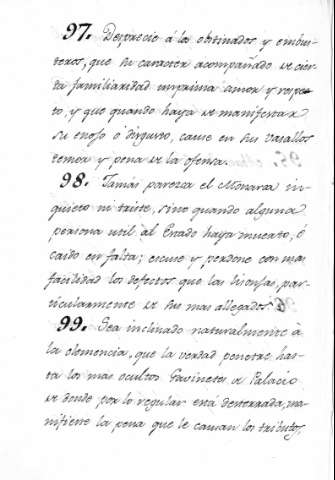 97. Desprecie á los obstinados y embus-
teros, que su caracter acompañado de cier-
ta familiaridad imprima amor y respe-
to, y que quando haya de manifestar
su enojo ó disgusto, cause en sus vasallos
temor y pena de la ofensa.
98. Jamás parezca el Monarca in-
quieto ni triste, sino quando alguna
persona util al Estado haya muerto, ó
caido en falta; escuse y perdone con mas
facilidad los defectos que las lisonjas, par-
ticularmente de sus mas allegados.
99. Sea inclinado naturalmente á
la clemencia, que la verdad penetre has-
ta los mas ocultos Gavinetes de Palacio
de donde por lo regular está desterrada, ma-
nifieste la pena que le causan los tributos,